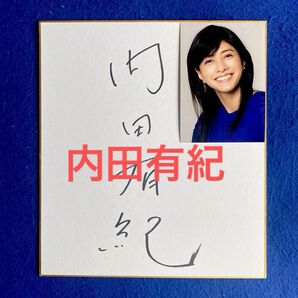 内
田
有
紀
内田有紀